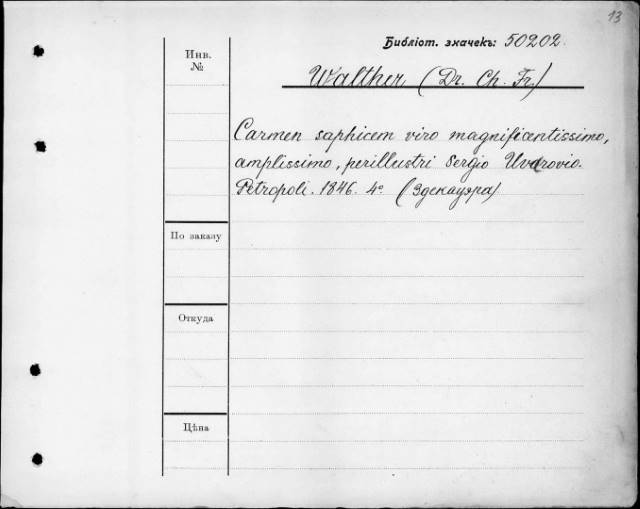 13
Библіот. значекъ: 50202.
Инв.
№
Walther (Dr. Ch. Fr.)
Carmen saphicem viro magnificentissimo,
amplissimo, perillustri Sergio Uvarovio.
Petropoli. 1846. 4º. (Эдекауэра)
По заказу
Откуда
Цѣна